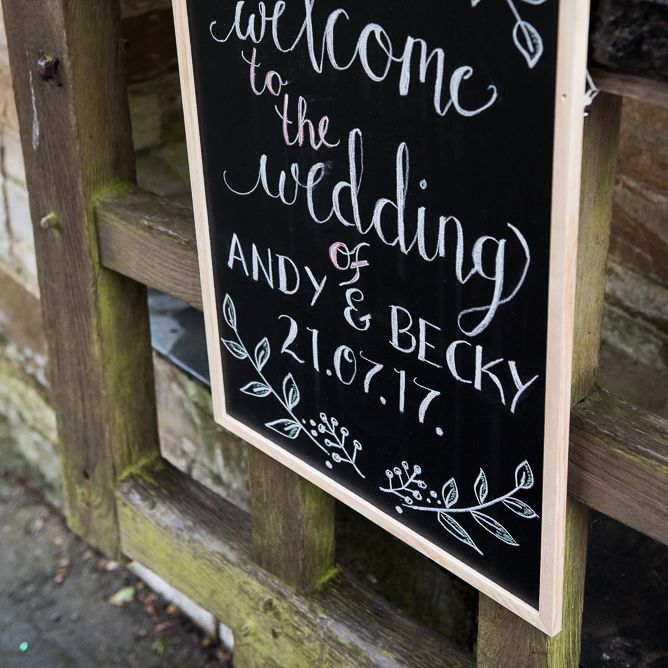 welcome
to
the
wedding
of
ANDY & BECKY
21.07.17.